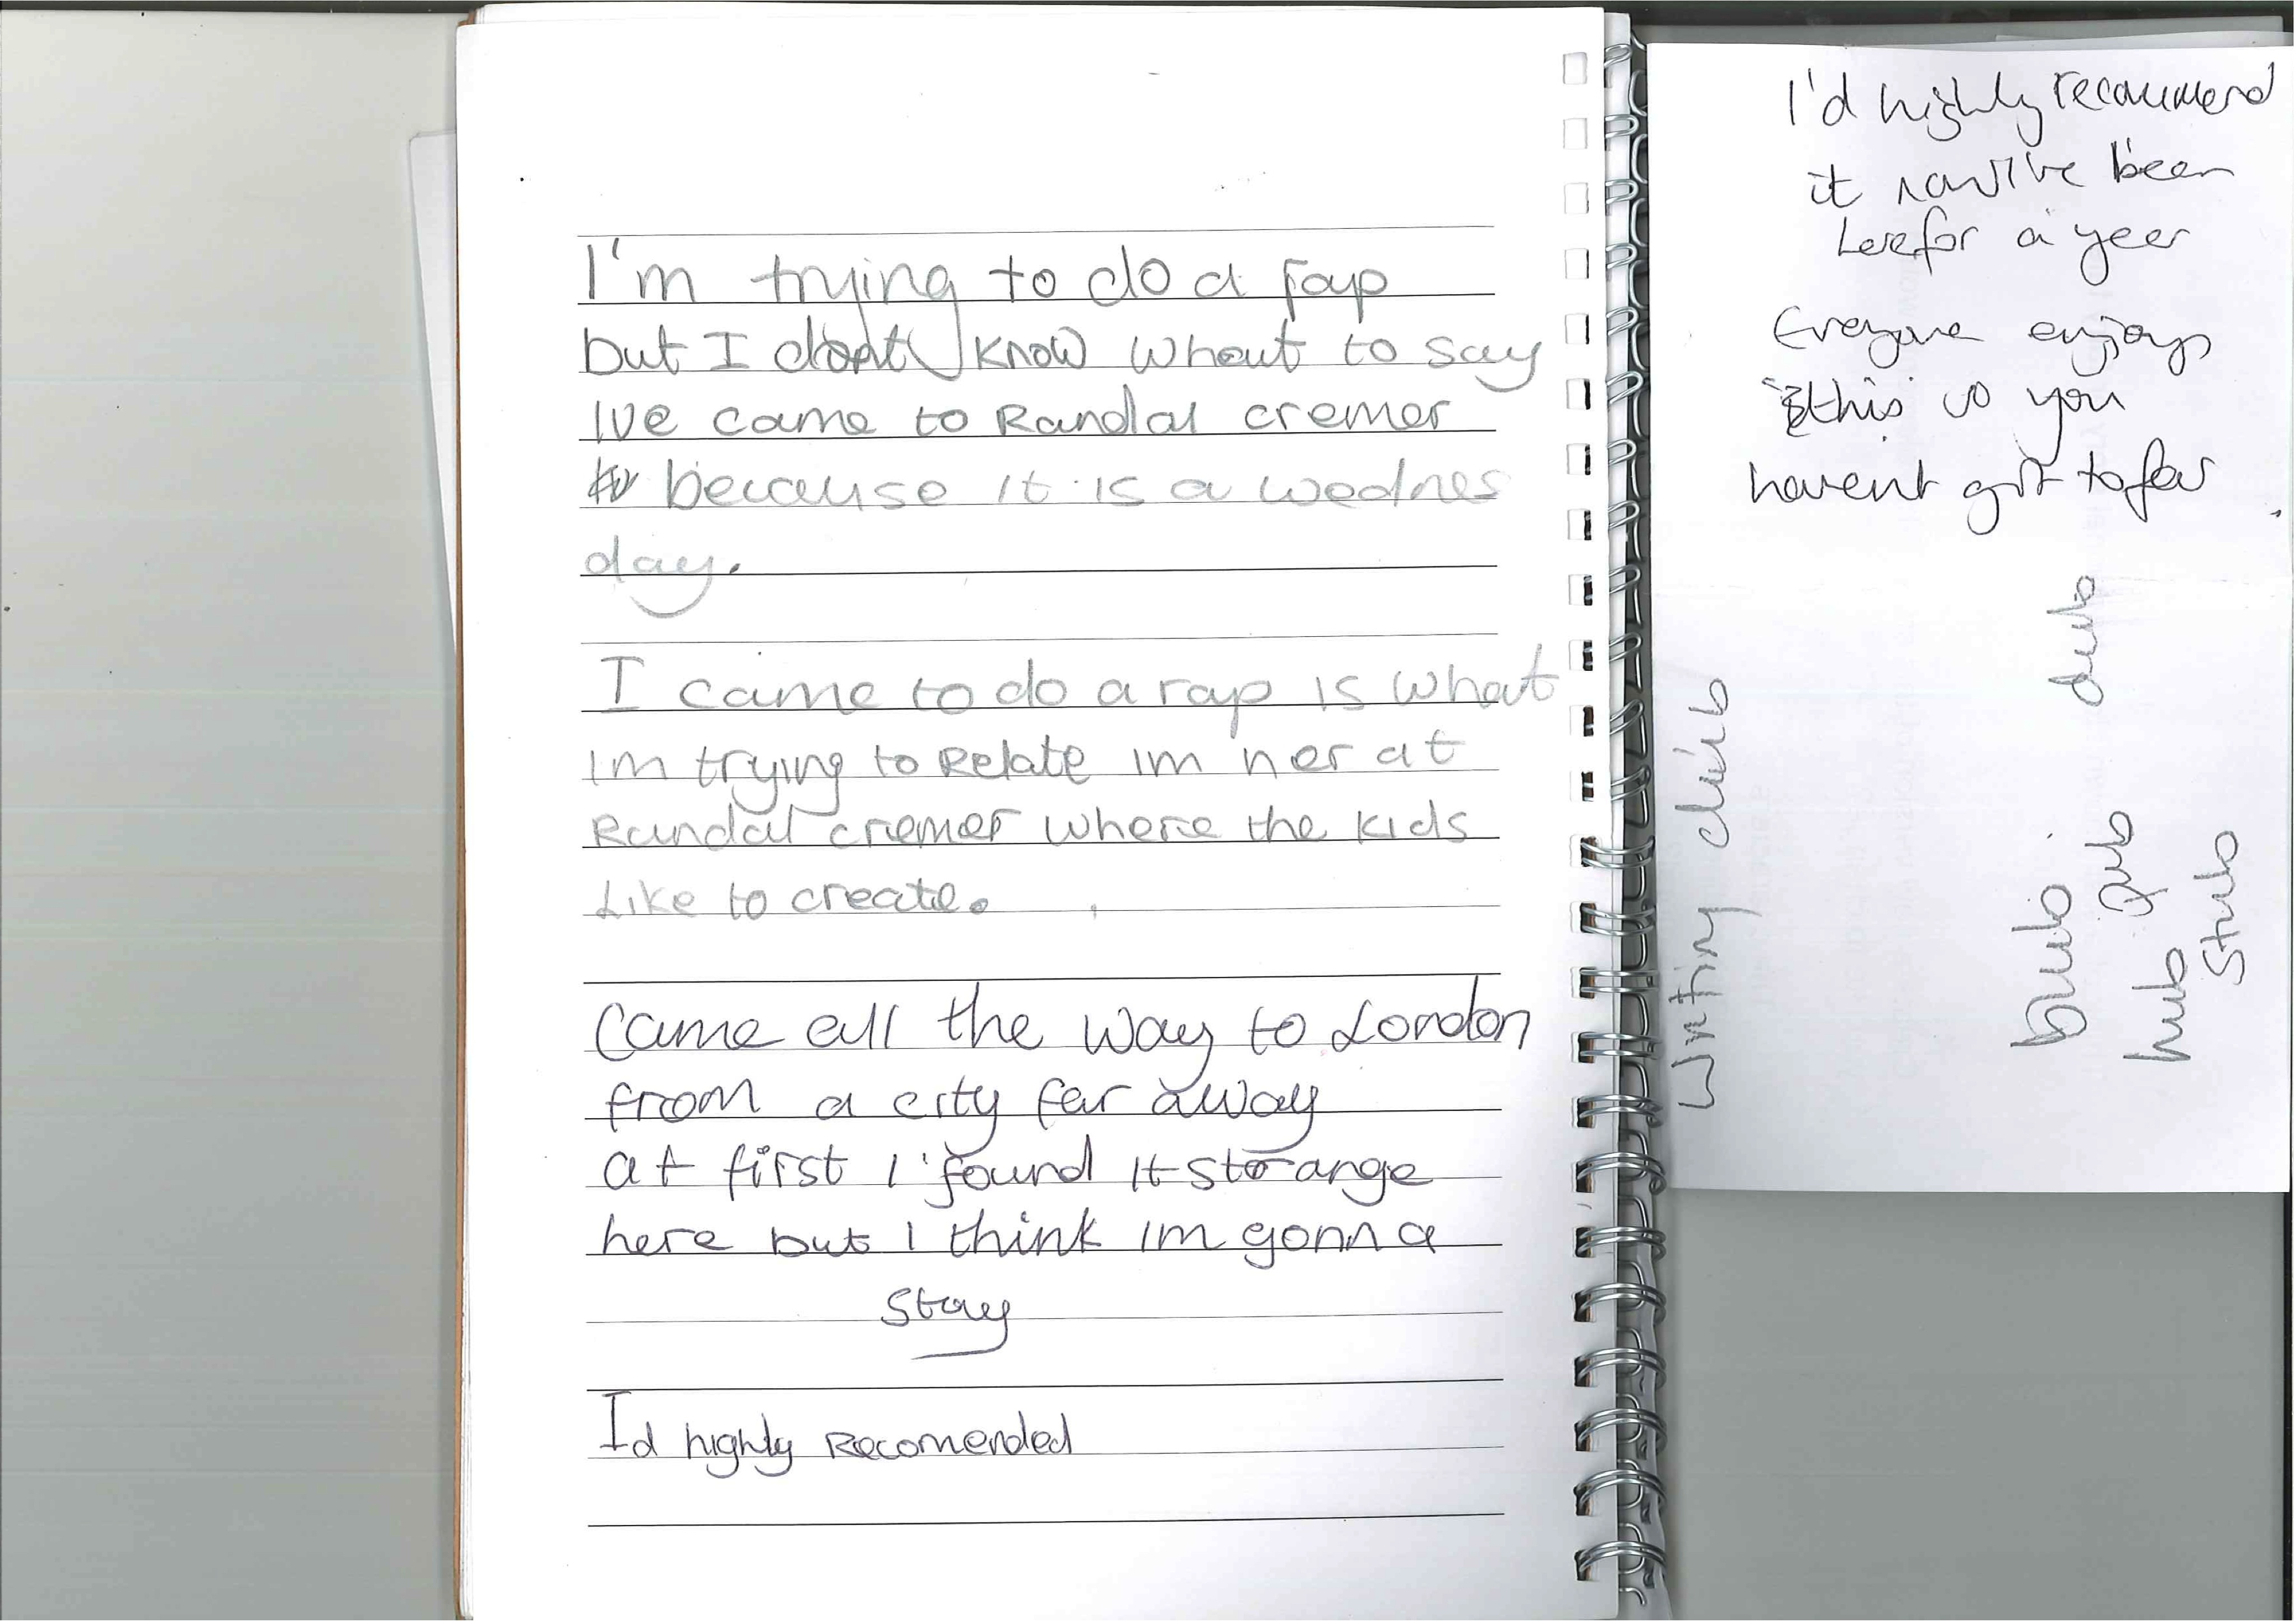 I'm trying to do a rap
but I dont know what to say
Ive came to Randal cremer
because it is a wednes
day.
I came to do a rap is what
Im trying to Relate im her at
Randal cremer where the kids
Like to create.
Came all the way to London
from a city far away
at first I found it strange
here but I think Im gonna
stay
Id highly Recomended
I'd highly recommend
it now I've been
here for a year
Everyone enjoys
this so you
havent got to fear
Writing club
dub
bub
Pub
hub
Stub